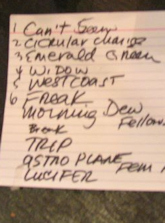 1 Can't Seem
2 Circular change
3 Emerald Green
4 WIDOW
5 WESTCOAST
6 Freak
Morning Dew
Fellow
Break
TRIP
ASTRO PLANE
Fem
LUCIFER